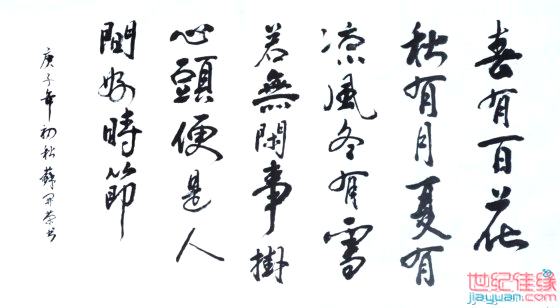 春有百花
秋有月夏有
凉風冬有雪
若無閑事掛
心頭便是人
間好時節
庚子年初秋蘇
世纪佳缘
jiayuan.com